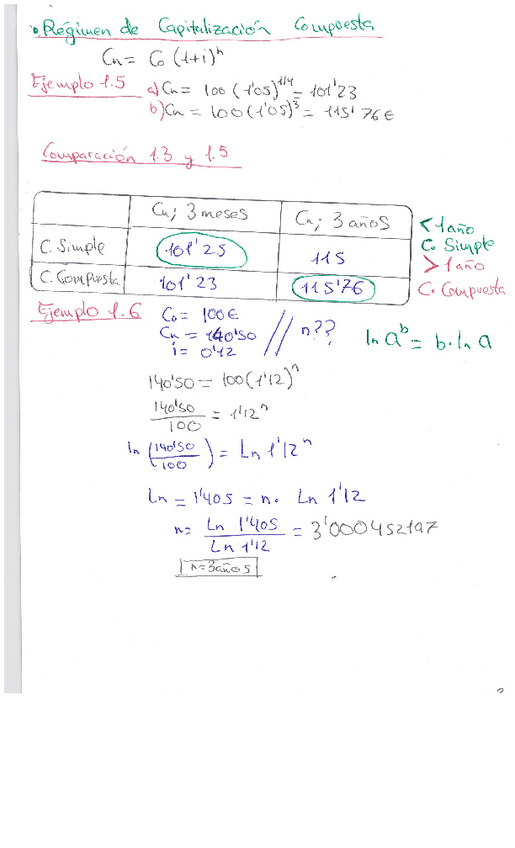 • Régimen de Capitalización Compuesta
Cn = Co (1+i)^n
Ejemplo 1.5 a) Cn = 100 (1'05)^1/4 = 101'23
b) Cn = 100 (1'05)^3 = 115'76€
Comparación 1.3 y 1.5
Cn; 3 meses Cn; 3 años
C. Simple 101'25 115
C. Compuesta 101'23 115'76
< 1 año
C. Simple
> 1 año
C. Compuesta
Ejemplo 1.6 Co = 100€
Cn = 140'50 // n??
i = 0'12
ln a^b = b · ln a
140'50 = 100 (1'12)^n
140'50 / 100 = 1'12^n
ln (140'50 / 100) = Ln 1'12^n
Ln = 1'405 = n · Ln 1'12
n = Ln 1'405 / Ln 1'12 = 3'000452197
n=3años